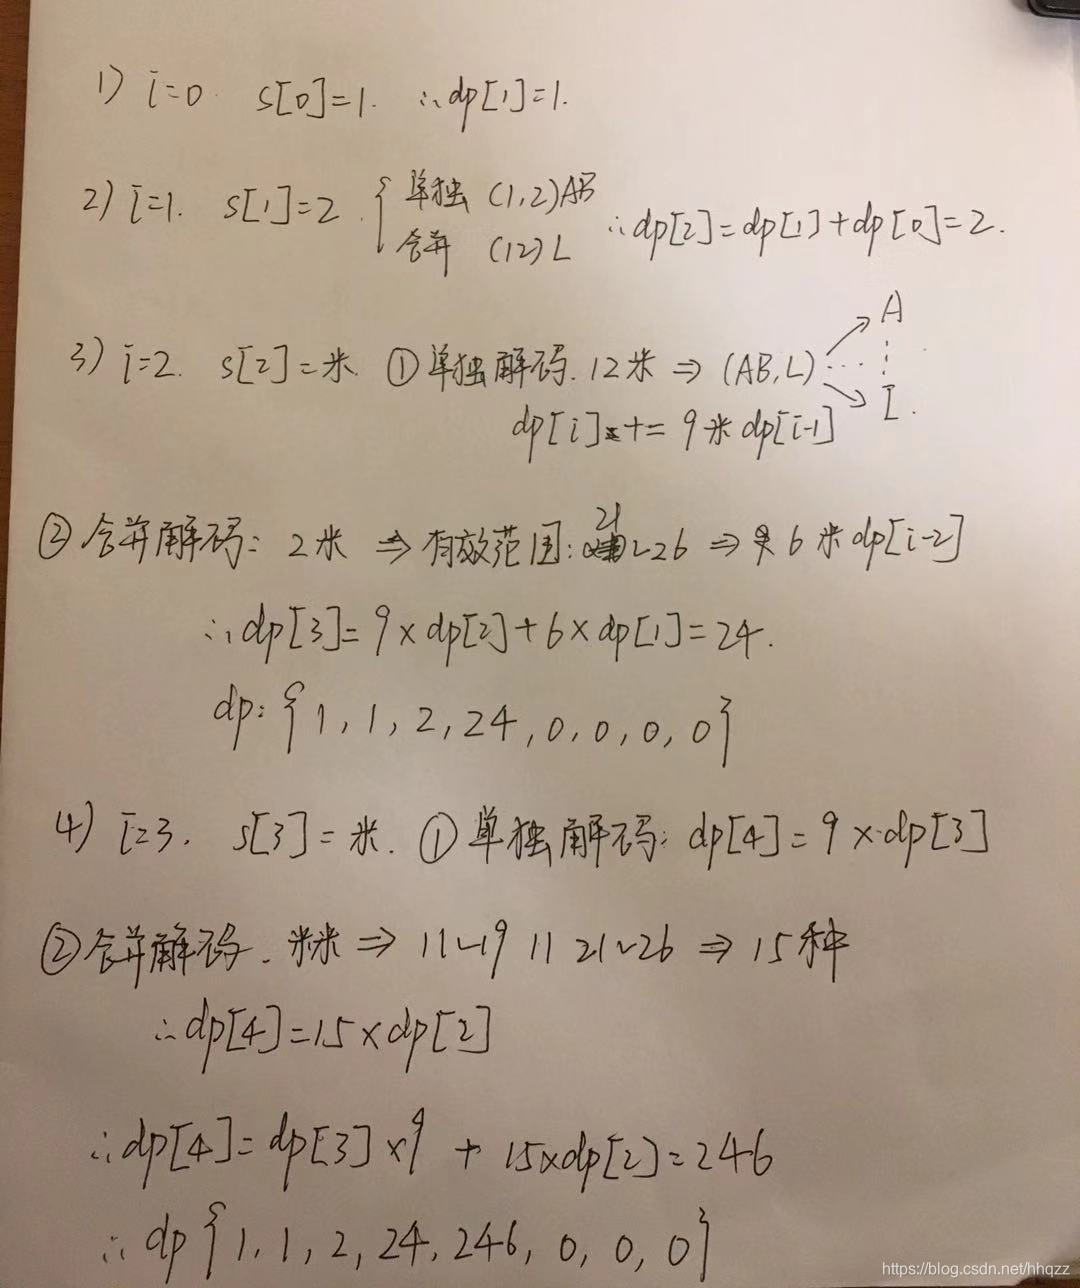 1) i=0. s[0]=1. ∴dp[1]=1.
2) i=1. s[1]=2. { 单独 (1,2)AB
合并 (12)L
∴dp[2]=dp[1]+dp[0]=2.
3) i=2. s[2]=米. ①单独解码. 12米 ⇒ (AB,L) → A
⋮
→ I.
dp[i] += 9米dp[i-1]
② 合并解码: 2米 ⇒ 有效范围: 21~26 ⇒ 6米dp[i-2]
∴dp[3]=9×dp[2]+6×dp[1]=24.
dp: {1, 1, 2, 24, 0, 0, 0, 0}
4) i=3. s[3]=米. ①单独解码: dp[4]=9×dp[3]
②合并解码. 米米 ⇒ 11~19 11 21~26 ⇒ 15种
∴dp[4]=15×dp[2]
∴dp[4]=dp[3]×9 + 15×dp[2]=246
∴ dp {1, 1, 2, 24, 246, 0, 0, 0}
https://blog.csdn.net/hhqzz